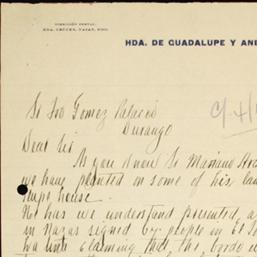 DIRECCIÓN POSTAL:
HDA. CRUCES, NAZAS, DGO.
HDA. DE GUADALUPE Y ANE
Sr Ivo Gomez Palacio
Durango
Dear Sir
As you know Sr Mariano
we have planted on some of his
house
He has we understand presented, a
in Nazas signed by people in El
claiming that the bordo